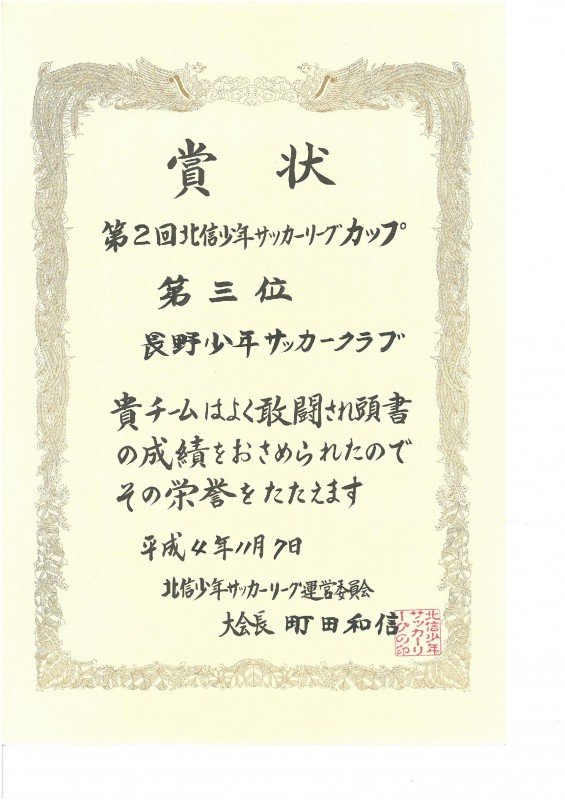 賞状
第2回北信少年サッカーリーグカップ
第三位
長野少年サッカークラブ
貴チームはよく敢闘され頭書
の成績をおさめられたので
その栄誉をたたえます
平成4年11月7日
北信少年サッカーリーグ運営委員会
大会長 町田和信
北信少年
サッカーリ
ーグの印